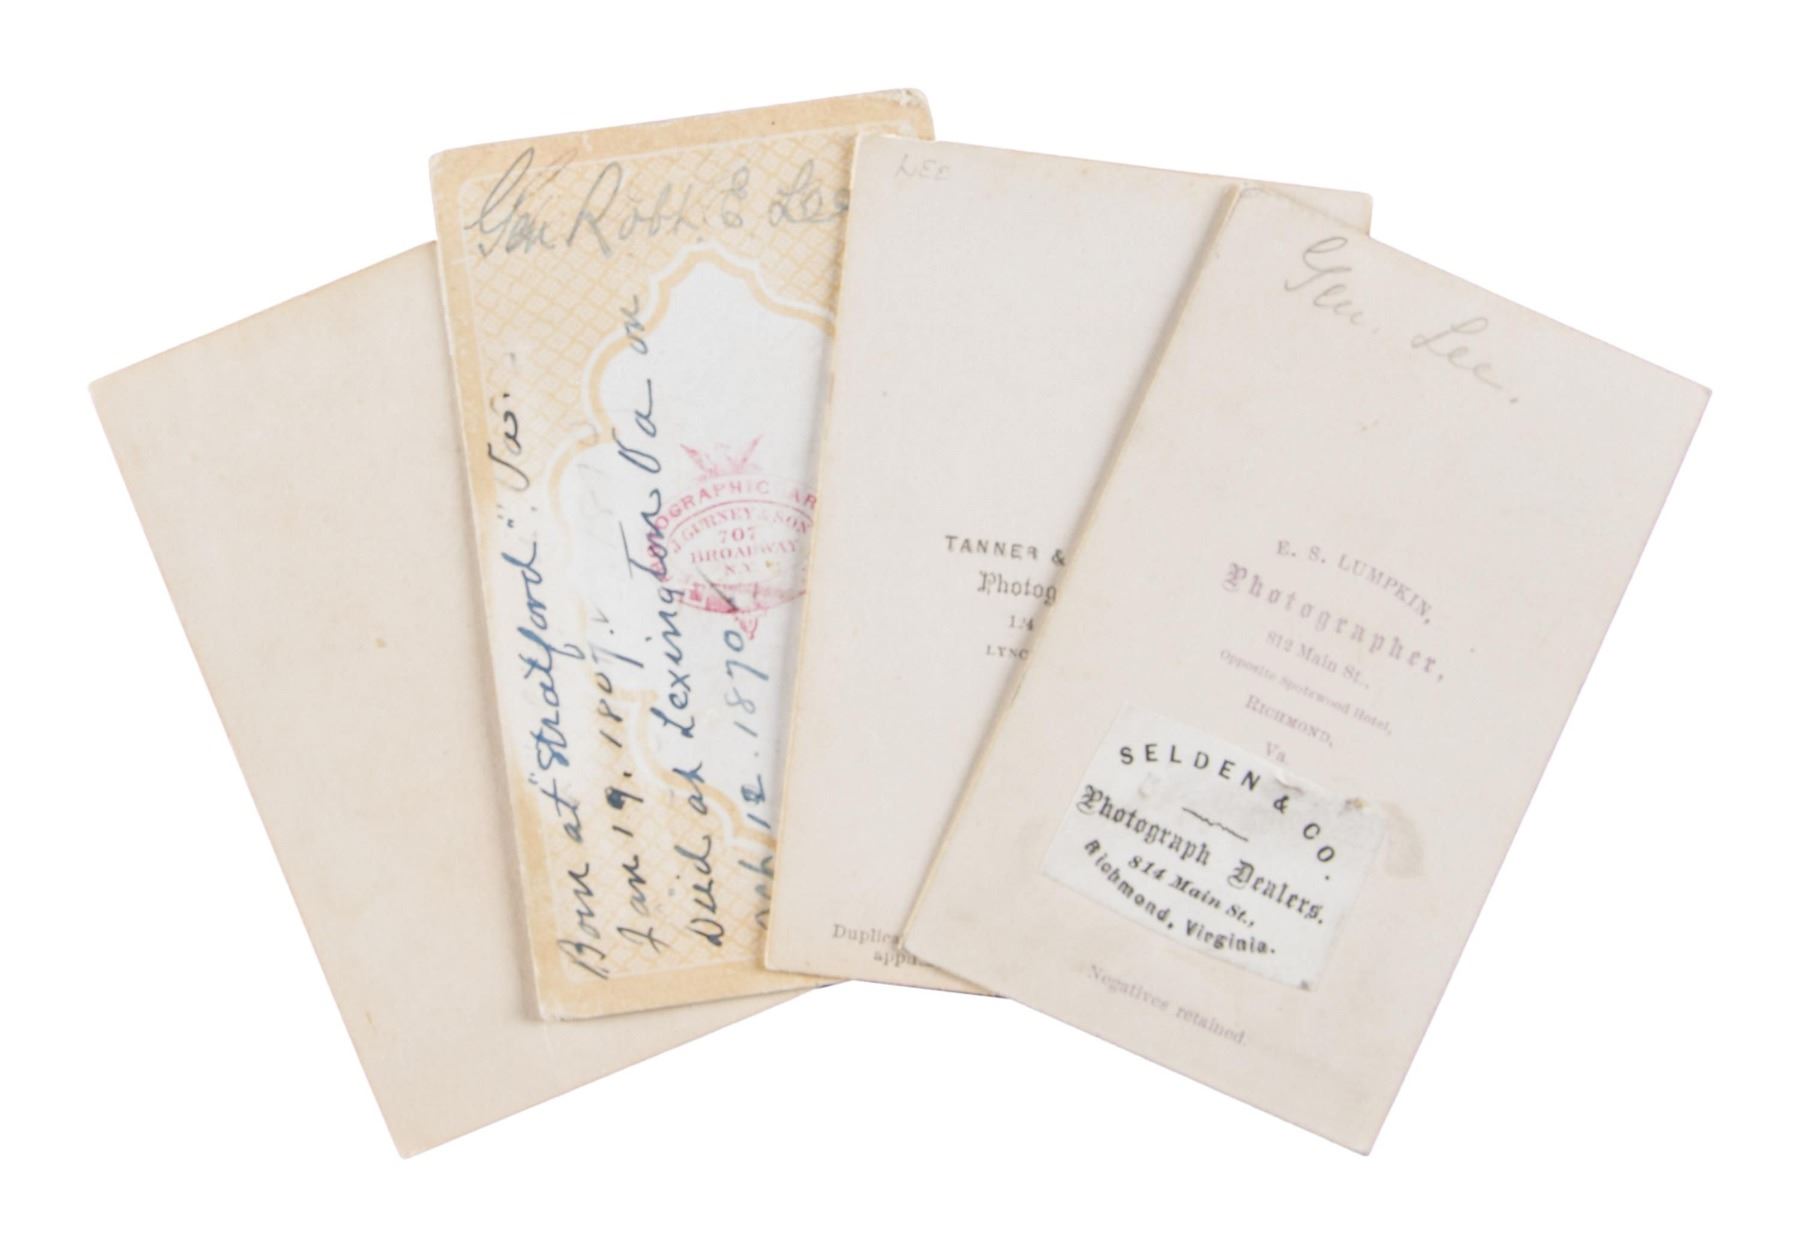 Gen Robt. E Lee
Born at "Stratford" Va.
Jan 19. 1807.
Died at Lexington Va on
12. 1870
PHOTOGRAPHIC AR
J. GURNEY & SON
707
BROADWAY
N.Y.
LEE
TANNER &
Photog
LYNC
Duplica
Gen. Lee.
E. S. LUMPKIN,
Photographer,
812 Main St.,
Opposite Spotswood Hotel,
RICHMOND,
Va.
SELDEN & CO.
Photograph Dealers.
814 Main St.,
Richmond, Virginia.
Negatives retained.